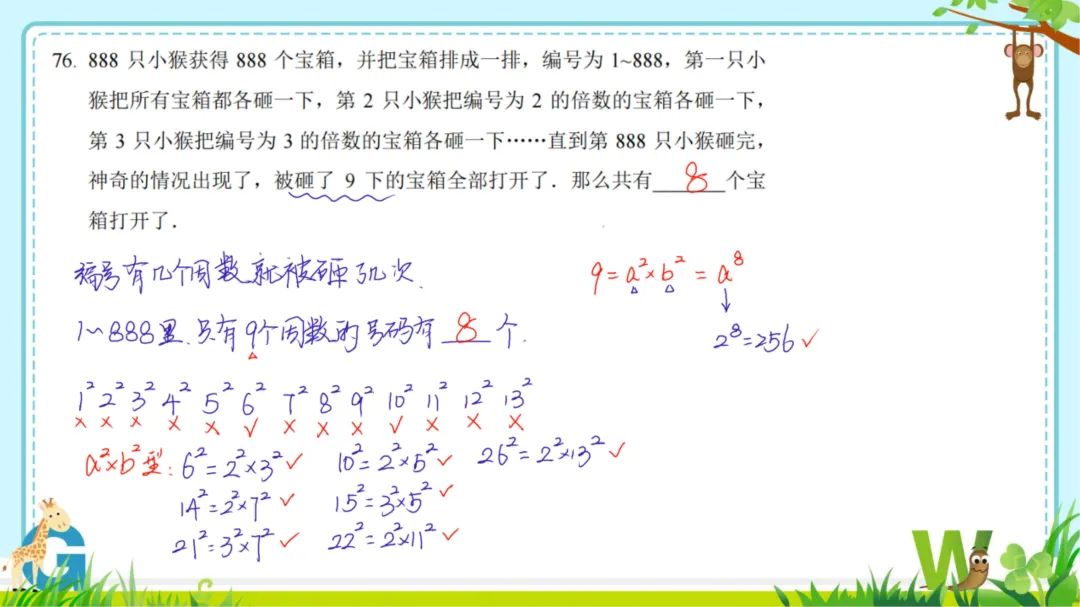 76. 888 只小猴获得 888 个宝箱，并把宝箱排成一排，编号为 1~888，第一只小
猴把所有宝箱都各砸一下，第 2 只小猴把编号为 2 的倍数的宝箱各砸一下，
第 3 只小猴把编号为 3 的倍数的宝箱各砸一下……直到第 888 只小猴砸完，
神奇的情况出现了，被砸了 9 下的宝箱全部打开了．那么共有 8 个宝
箱打开了．
编号有几个因数就被砸了几次.
1~888里,只有9个因数的号码有 8 个.
9=a²×b²=a⁸
↓
2⁸=256✓
1² 2² 3² 4² 5² 6² 7² 8² 9² 10² 11² 12² 13²
× × × × × ✓ × × × ✓ × × ×
a²×b²型: 6²=2²×3²✓ 10²=2²×5²✓ 26²=2²×13²✓
14²=2²×7²✓ 15²=3²×5²✓
21²=3²×7²✓ 22²=2²×11²✓
G
W